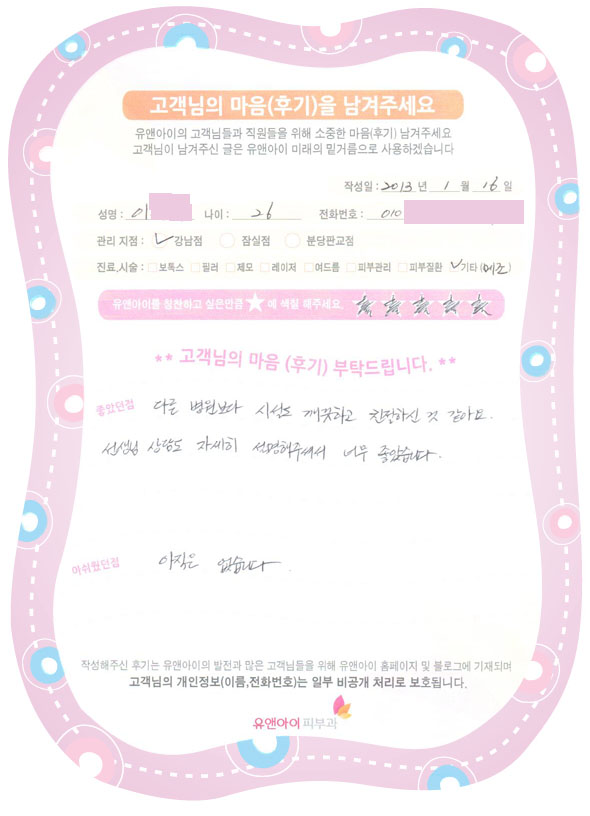 고객님의 마음(후기)을 남겨주세요
유앤아이의 고객님들과 직원들을 위해 소중한 마음(후기) 남겨주세요
고객님이 남겨주신 글은 유앤아이 미래의 밑거름으로 사용하겠습니다
작성일 : 2013 년 1 월 16 일
성명 : 이 나이 : 26 전화번호 : 010
관리 지점 : 강남점 잠실점 분당판교점
진료,시술 : 보톡스 필러 제모 레이저 여드름 피부관리 피부질환 기타 (메조)
유앤아이를 칭찬하고 싶은만큼 ★ 에 색칠 해주세요.
** 고객님의 마음 (후기) 부탁드립니다. **
좋았던점 다른 병원보다 시설도 깨끗하고 친절하신 것 같아요.
선생님 상담도 자세히 설명해주셔서 너무 좋았습니다.
아쉬웠던점 아직은 없습니다.
작성해주신 후기는 유앤아이의 발전과 많은 고객님들을 위해 유앤아이 홈페이지 및 블로그에 기재되며
고객님의 개인정보(이름,전화번호)는 일부 비공개 처리로 보호됩니다.
유앤아이 피부과